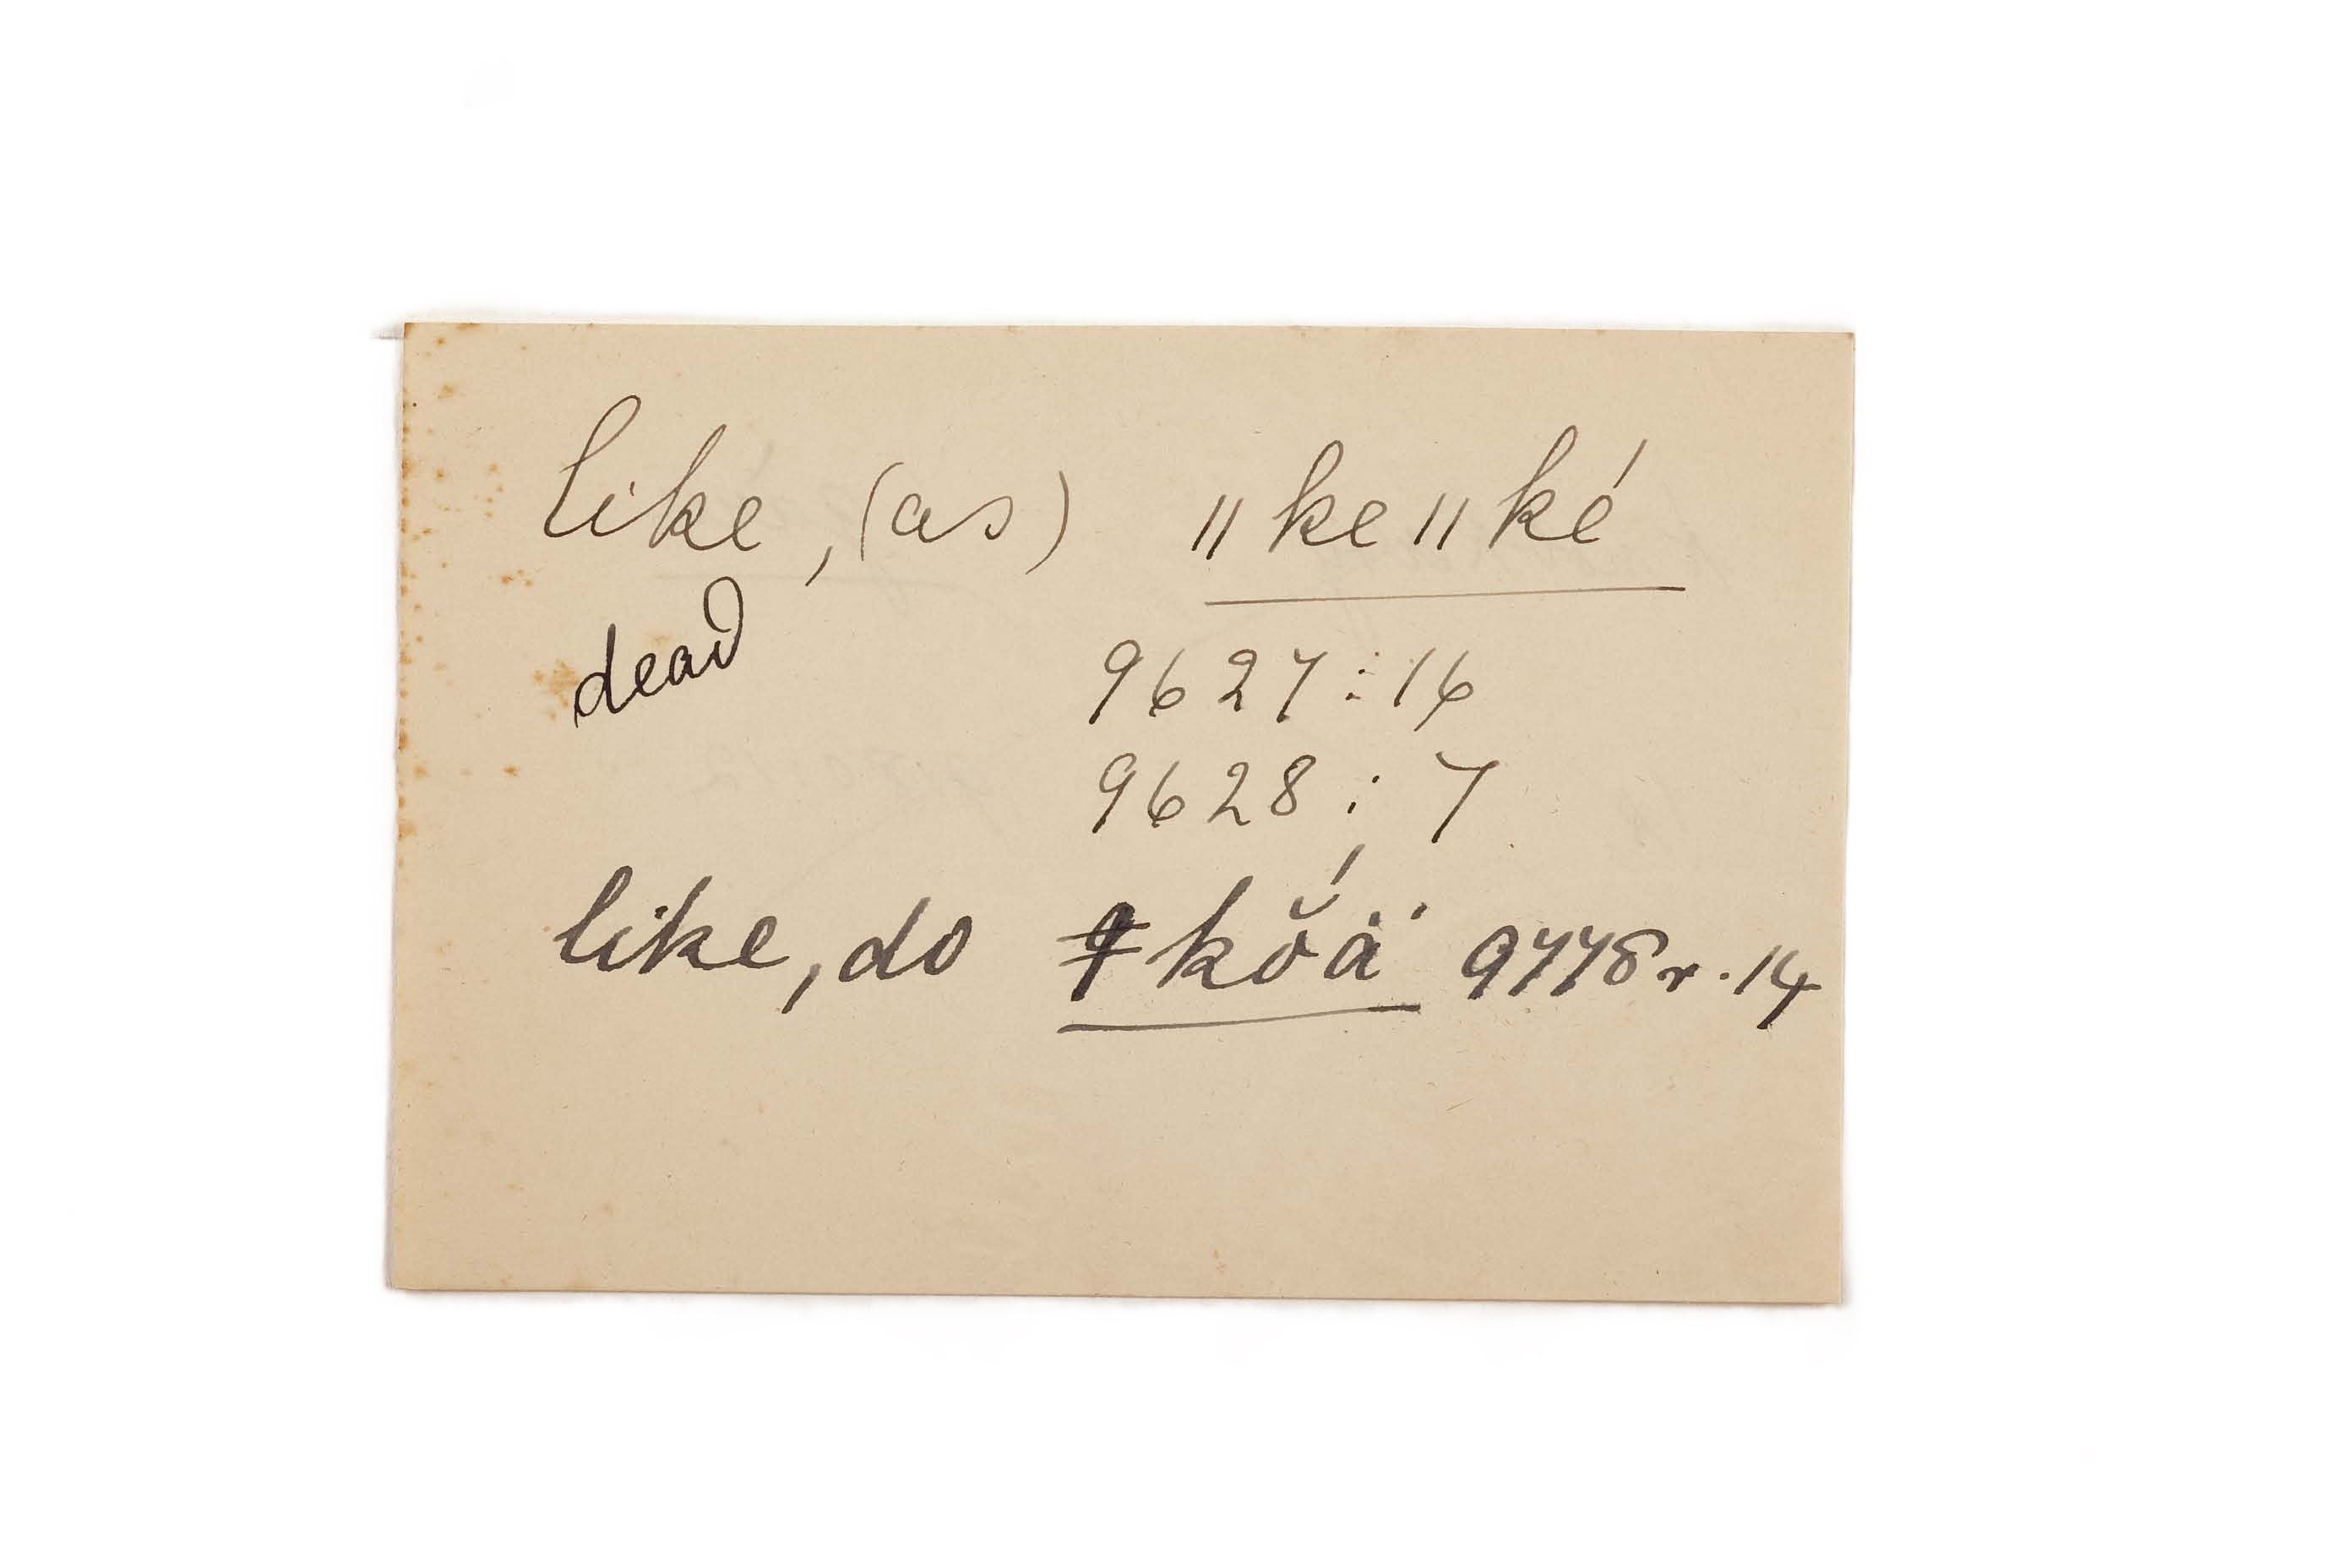 like, (as) ǁke ǁké
dead
9627 : 16
9628 : 7
like, do ǂkŏ́ä 9778 r. 14